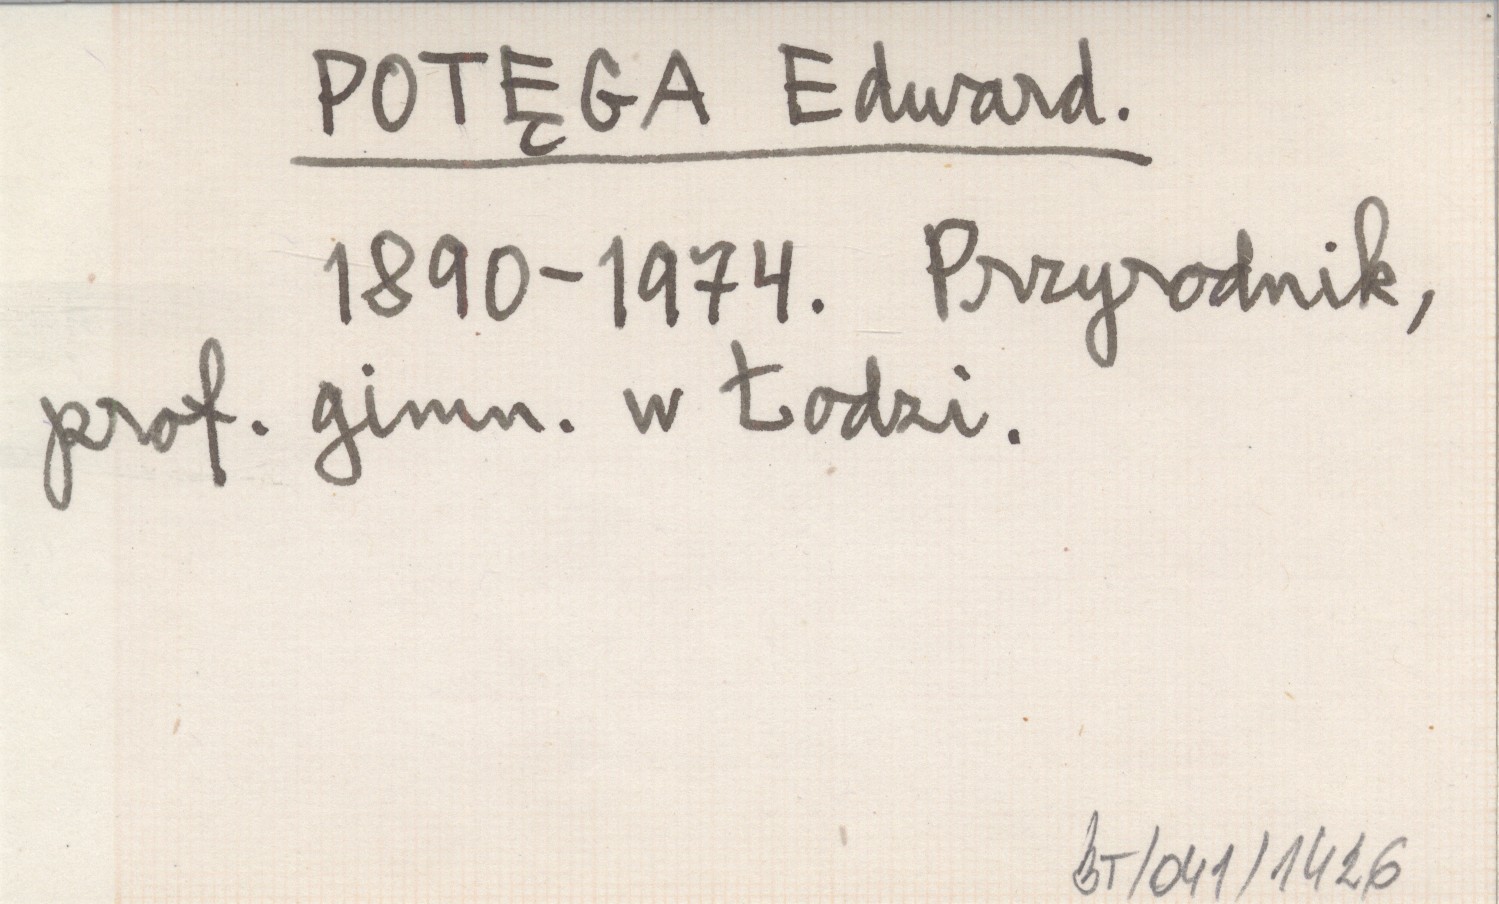 POTĘGA Edward.
1890-1974. Przyrodnik,
prof. gimn. w Łodzi.
BT/041/1426